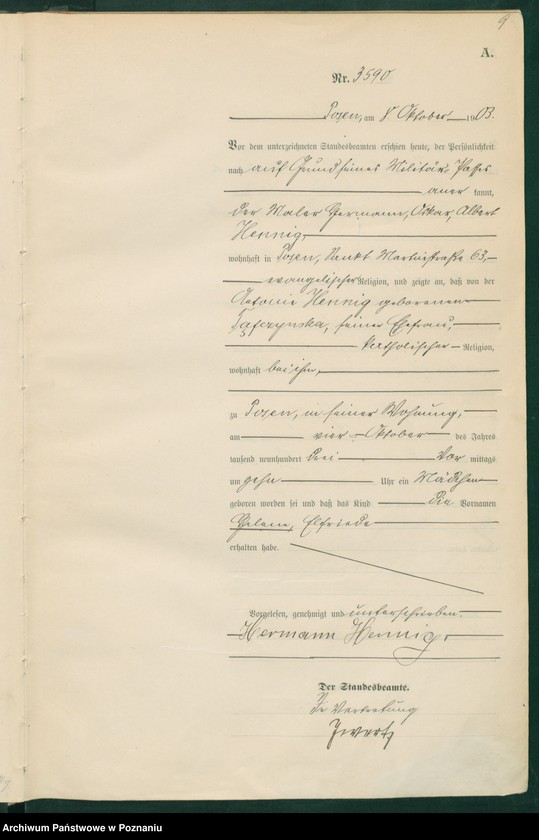 9
A.
Nr. 3590
Posen, am 8. Oktober 1903.
Vor dem unterzeichneten Standesbeamten erschien heute, der Persönlichkeit
nach auf Grund seines Militär-Passes
aner kannt,
der Maler Hermann, Oskar, Albert
Hennig,
wohnhaft in Posen, Sankt Martinstraße 63,
evangelischer Religion, und zeigte an, daß von der
Antonie Hennig geborenen
seiner Ehefrau,
katholischer Religion,
wohnhaft bei ihm,
zu Posen, in seiner Wohnung,
am vier Oktober des Jahres
tausend neunhundert drei Vor mittags
um zehn Uhr ein Mädchen
geboren worden sei und daß das Kind die Vornamen
Elfriede
erhalten habe.
Vorgelesen, genehmigt und unterschrieben.
Hermann Hennig.
Der Standesbeamte.
In Vertretung
Archiwum Państwowe w Poznaniu